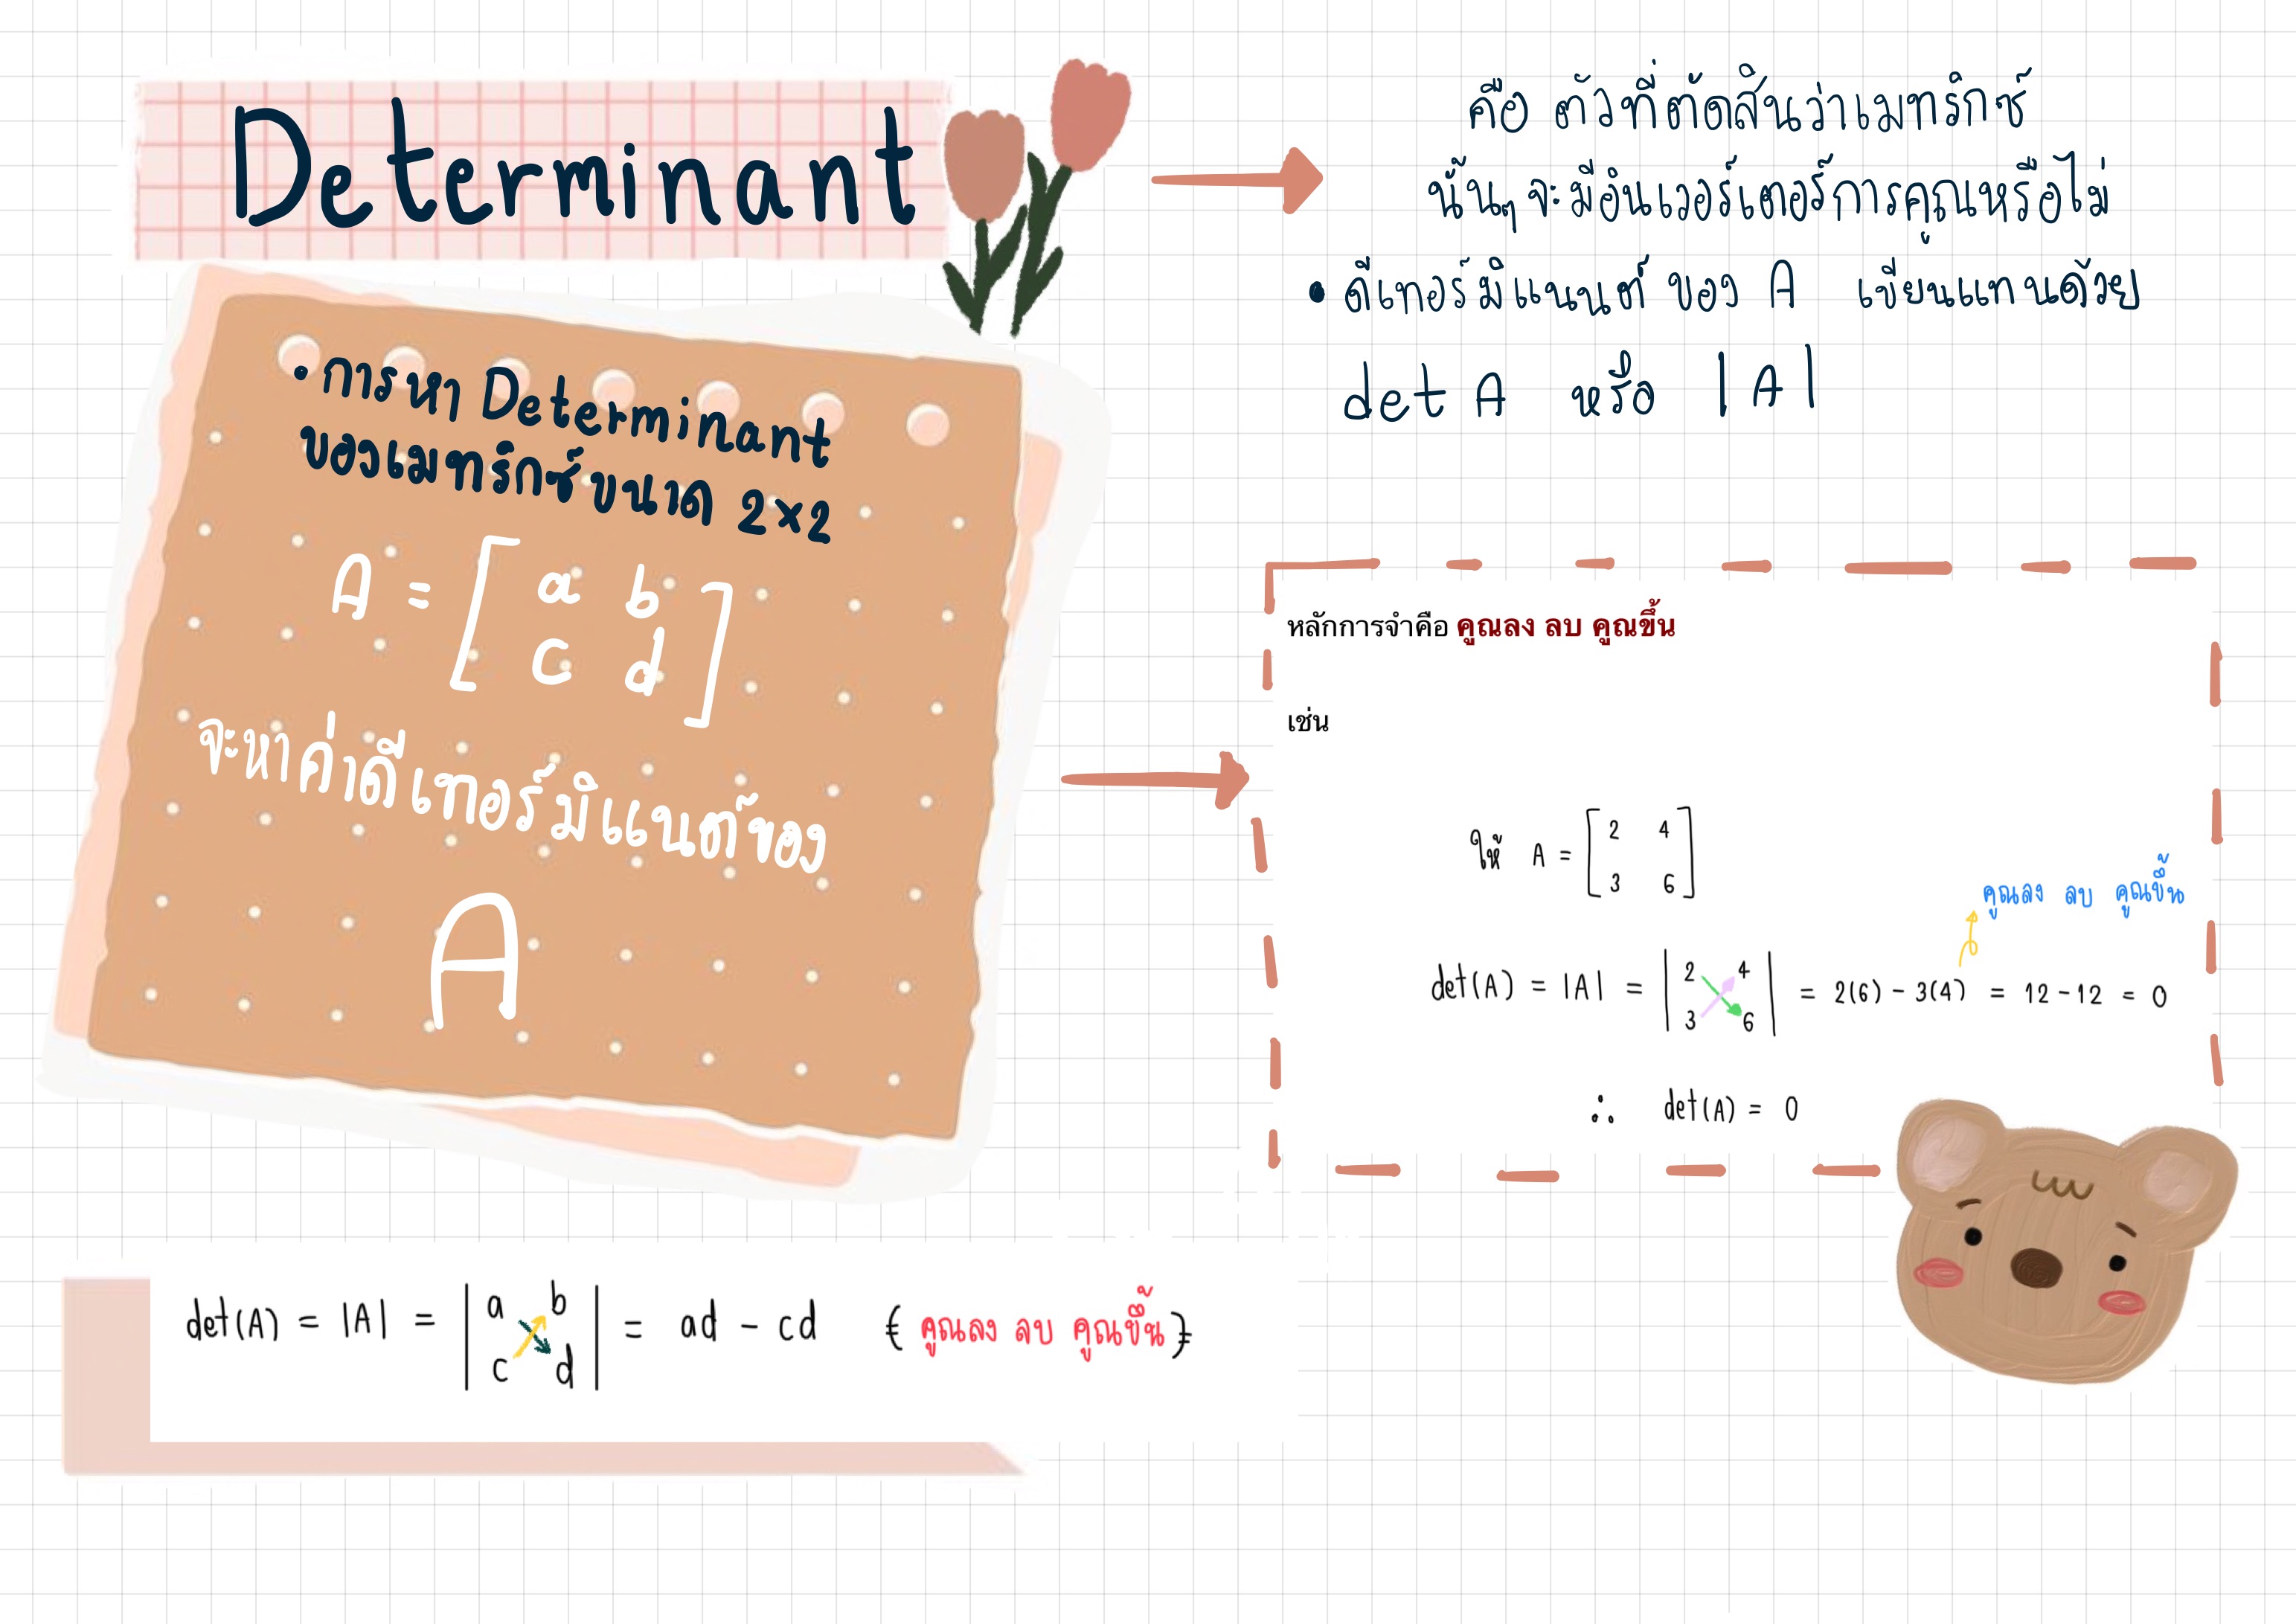 Determinant
คือ ตัวที่ตัดสินว่าเมทริกซ์
นั้นๆ จะมีอินเวอร์เตอร์การคูณหรือไม่
• ดีเทอร์มิแนนต์ ของ A เขียนแทนด้วย
det A หรือ |A|
• การหา Determinant
ของเมทริกซ์ขนาด 2×2
A = [ a b
c d ]
จะหาค่าดีเทอร์มิแนนต์ของ
A
หลักการจำคือ คูณลง ลบ คูณขึ้น
เช่น
ให้ A = [ 2 4
3 6 ]
คูณลง ลบ คูณขึ้น
det(A) = |A| = | 2 4
3 6 | = 2(6) - 3(4) = 12 - 12 = 0
∴ det(A) = 0
det(A) = |A| = | a b
c d | = ad - cd ( คูณลง ลบ คูณขึ้น )